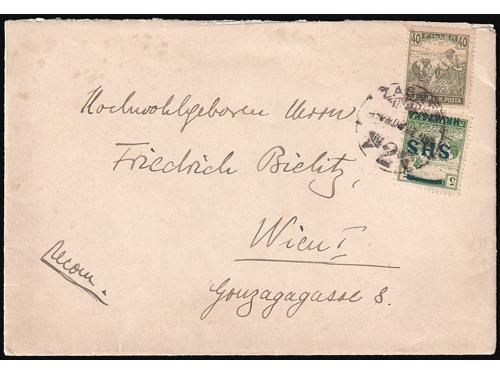 40 FILLER 40
MAGYAR POSTA
ZAG
HRVATSKA
SHS
5
Hochwohlgeboren Herrn
Friedrich Bielitz,
Wien I
recom.
Gonzagagasse 8.